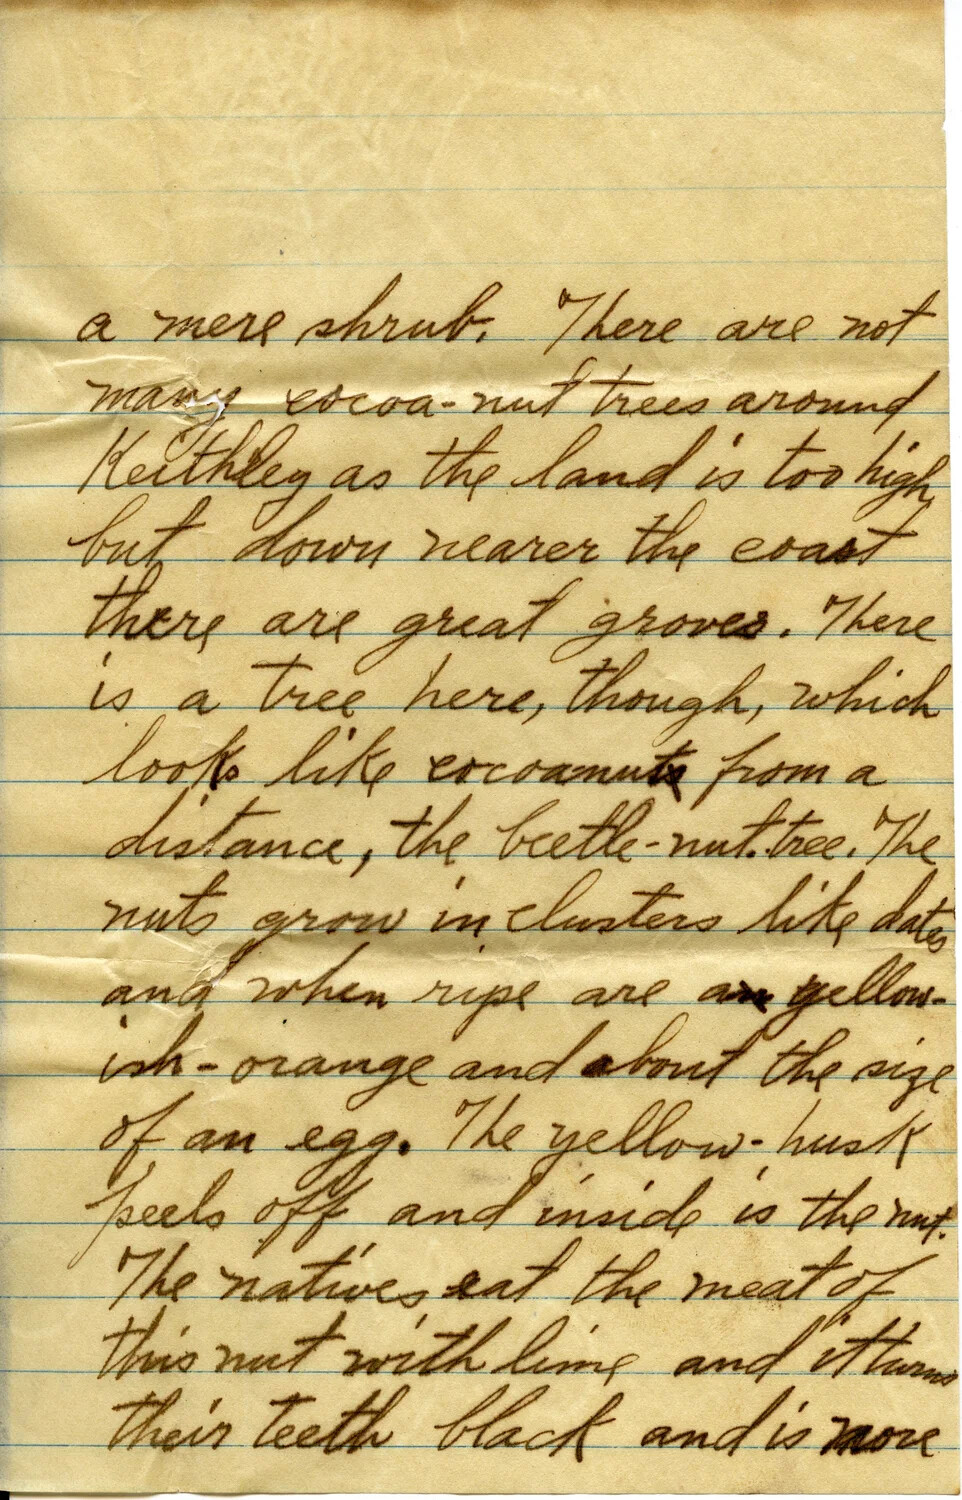 a mere shrub. There are not
many cocoa-nut trees around
Keithley as the land is too high
but down nearer the coast
there are great groves. There
is a tree here, though, which
looks like cocoanuts from a
distance, the beetle-nut tree. The
nuts grow in clusters like dates
and when ripe are an yellow-
ish-orange and about the size
of an egg. The yellow-husk
peels off and inside is the nut.
The natives eat the meat of
this nut with lime and it turns
their teeth black and is more